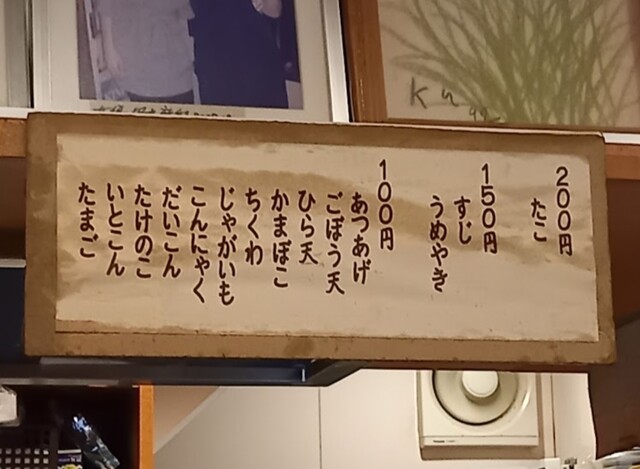 200円
たこ
150円
すじ
うめやき
100円
あつあげ
ごぼう天
ひら天
かまぼこ
ちくわ
じゃがいも
こんにゃく
だいこん
たけのこ
いとこん
たまご